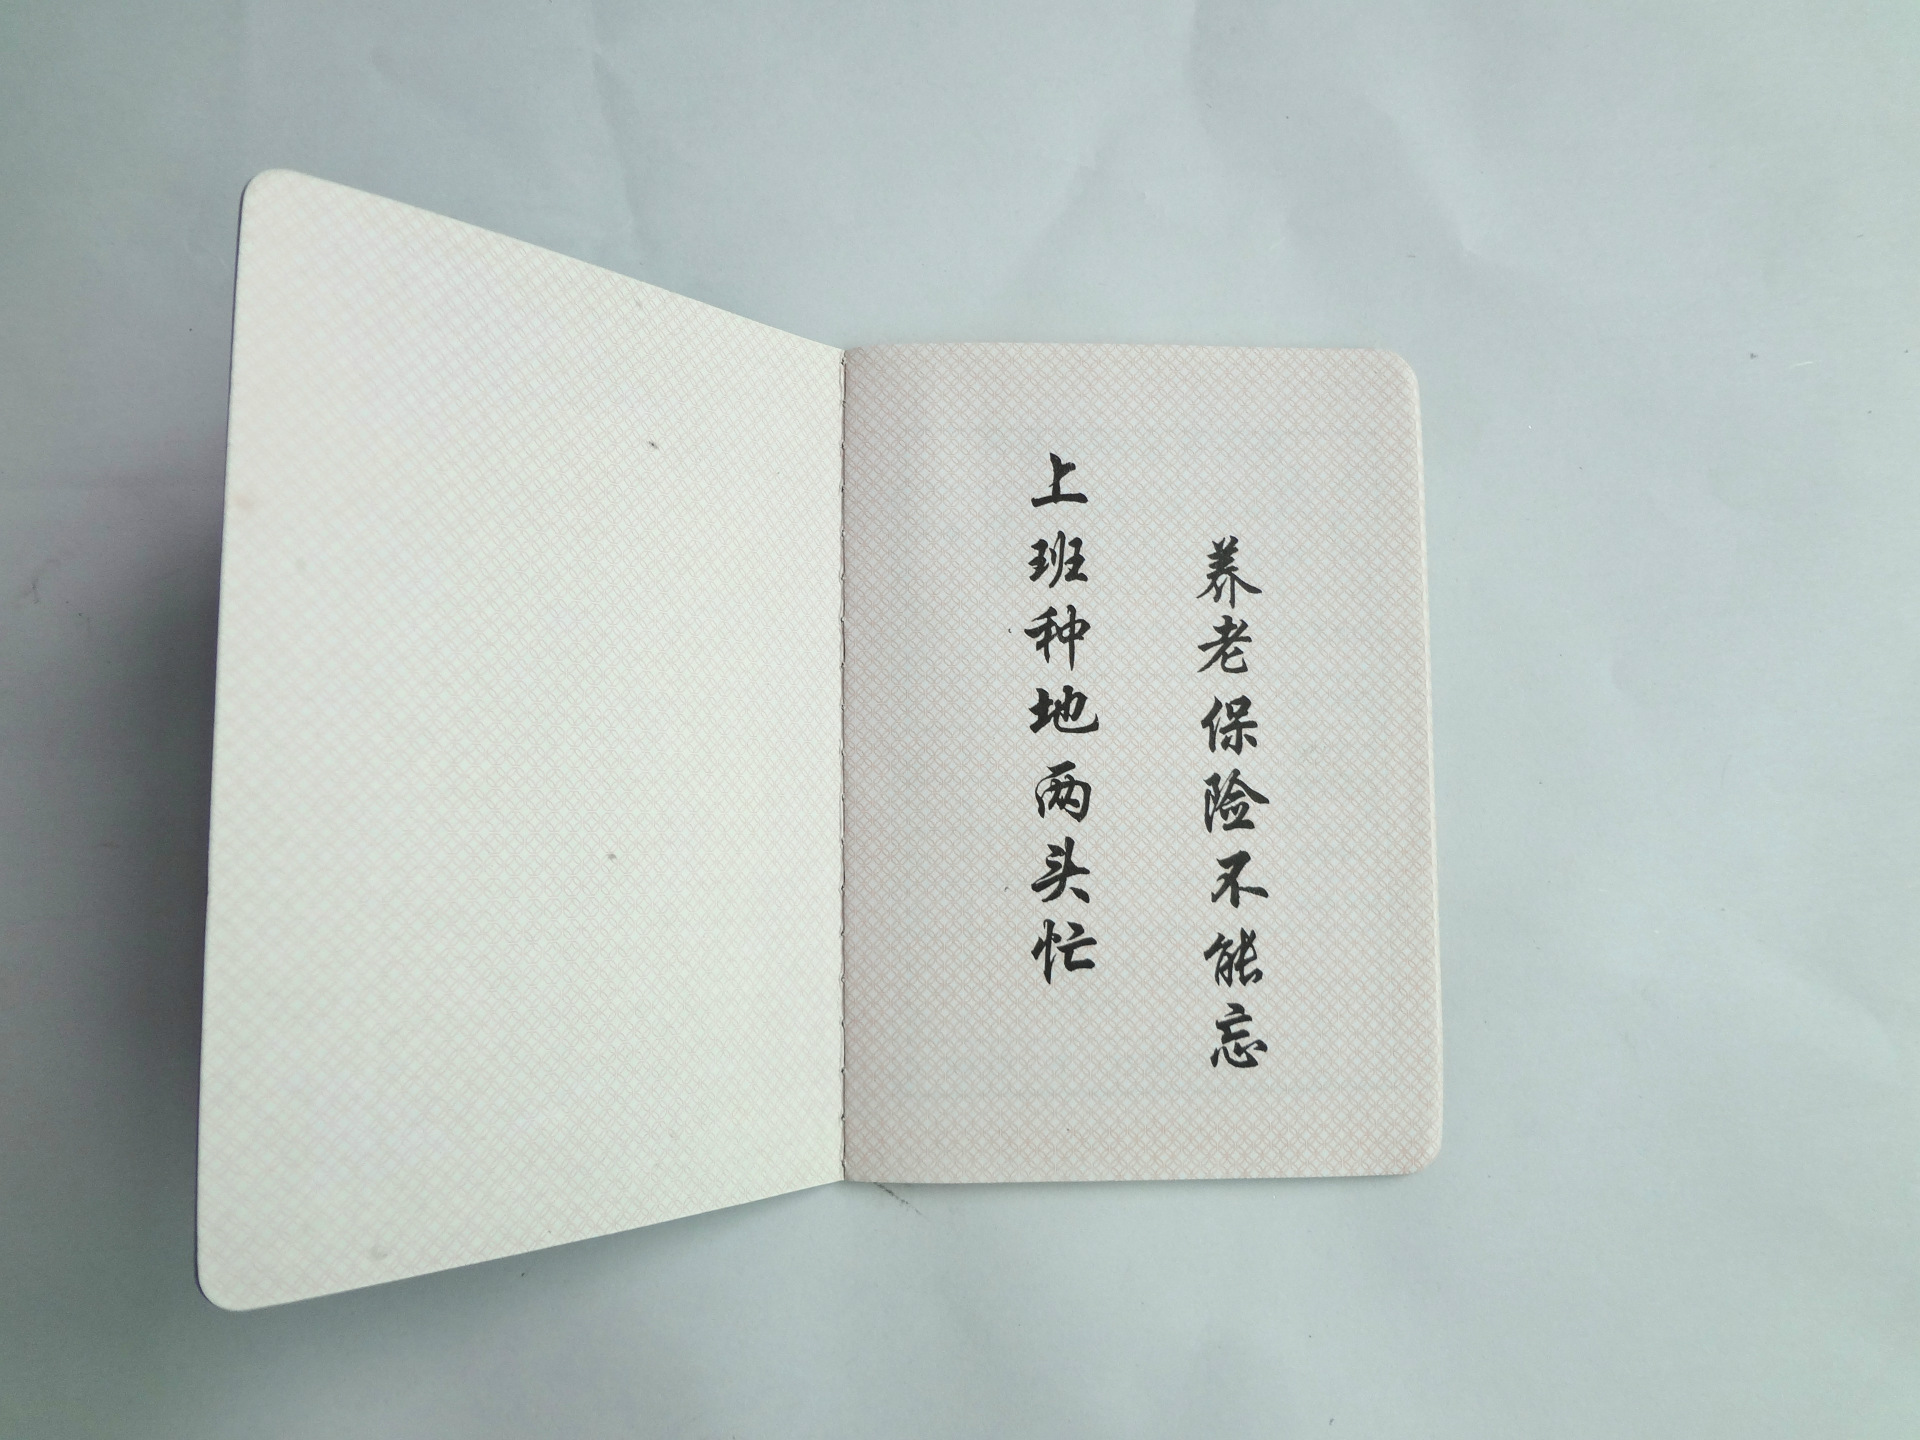 养老保险不能忘
上班种地两头忙